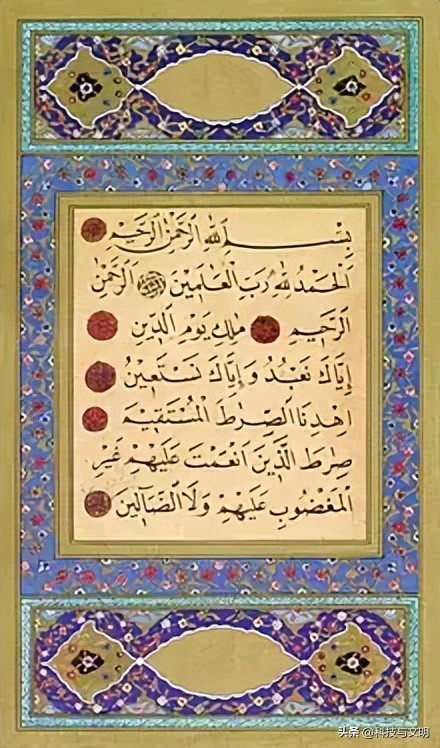 بِسْمِ اللهِ الرَّحْمٰنِ الرَّحِيمِ
اَلْحَمْدُ لِلّٰهِ رَبِّ الْعَالَمِينَ اَلرَّحْمٰنِ
الرَّحِيمِ مَالِكِ يَوْمِ الدِّينِ
اِيَّاكَ نَعْبُدُ وَاِيَّاكَ نَسْتَعِينُ
اِهْدِنَا الصِّرَاطَ الْمُسْتَقِيمَ
صِرَاطَ الَّذِينَ اَنْعَمْتَ عَلَيْهِمْ غَيْرِ
الْمَغْضُوبِ عَلَيْهِمْ وَلَا الضَّالِّينَ
头条 @科技与文明